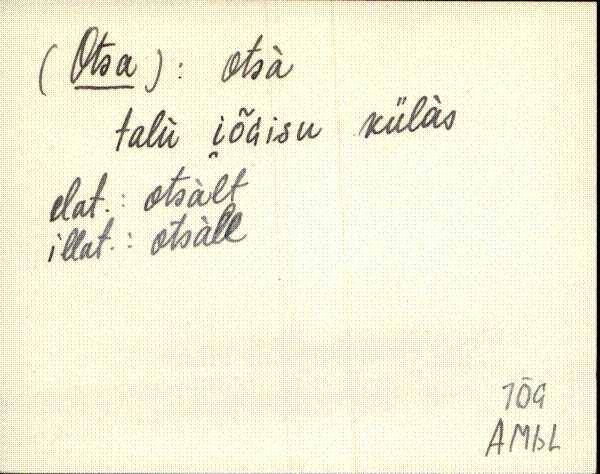 (Otsa): otsà
talù i̯õɢisu külàs
elat.: otsàlt
illat.: otsàlle
JÕG
AMbL